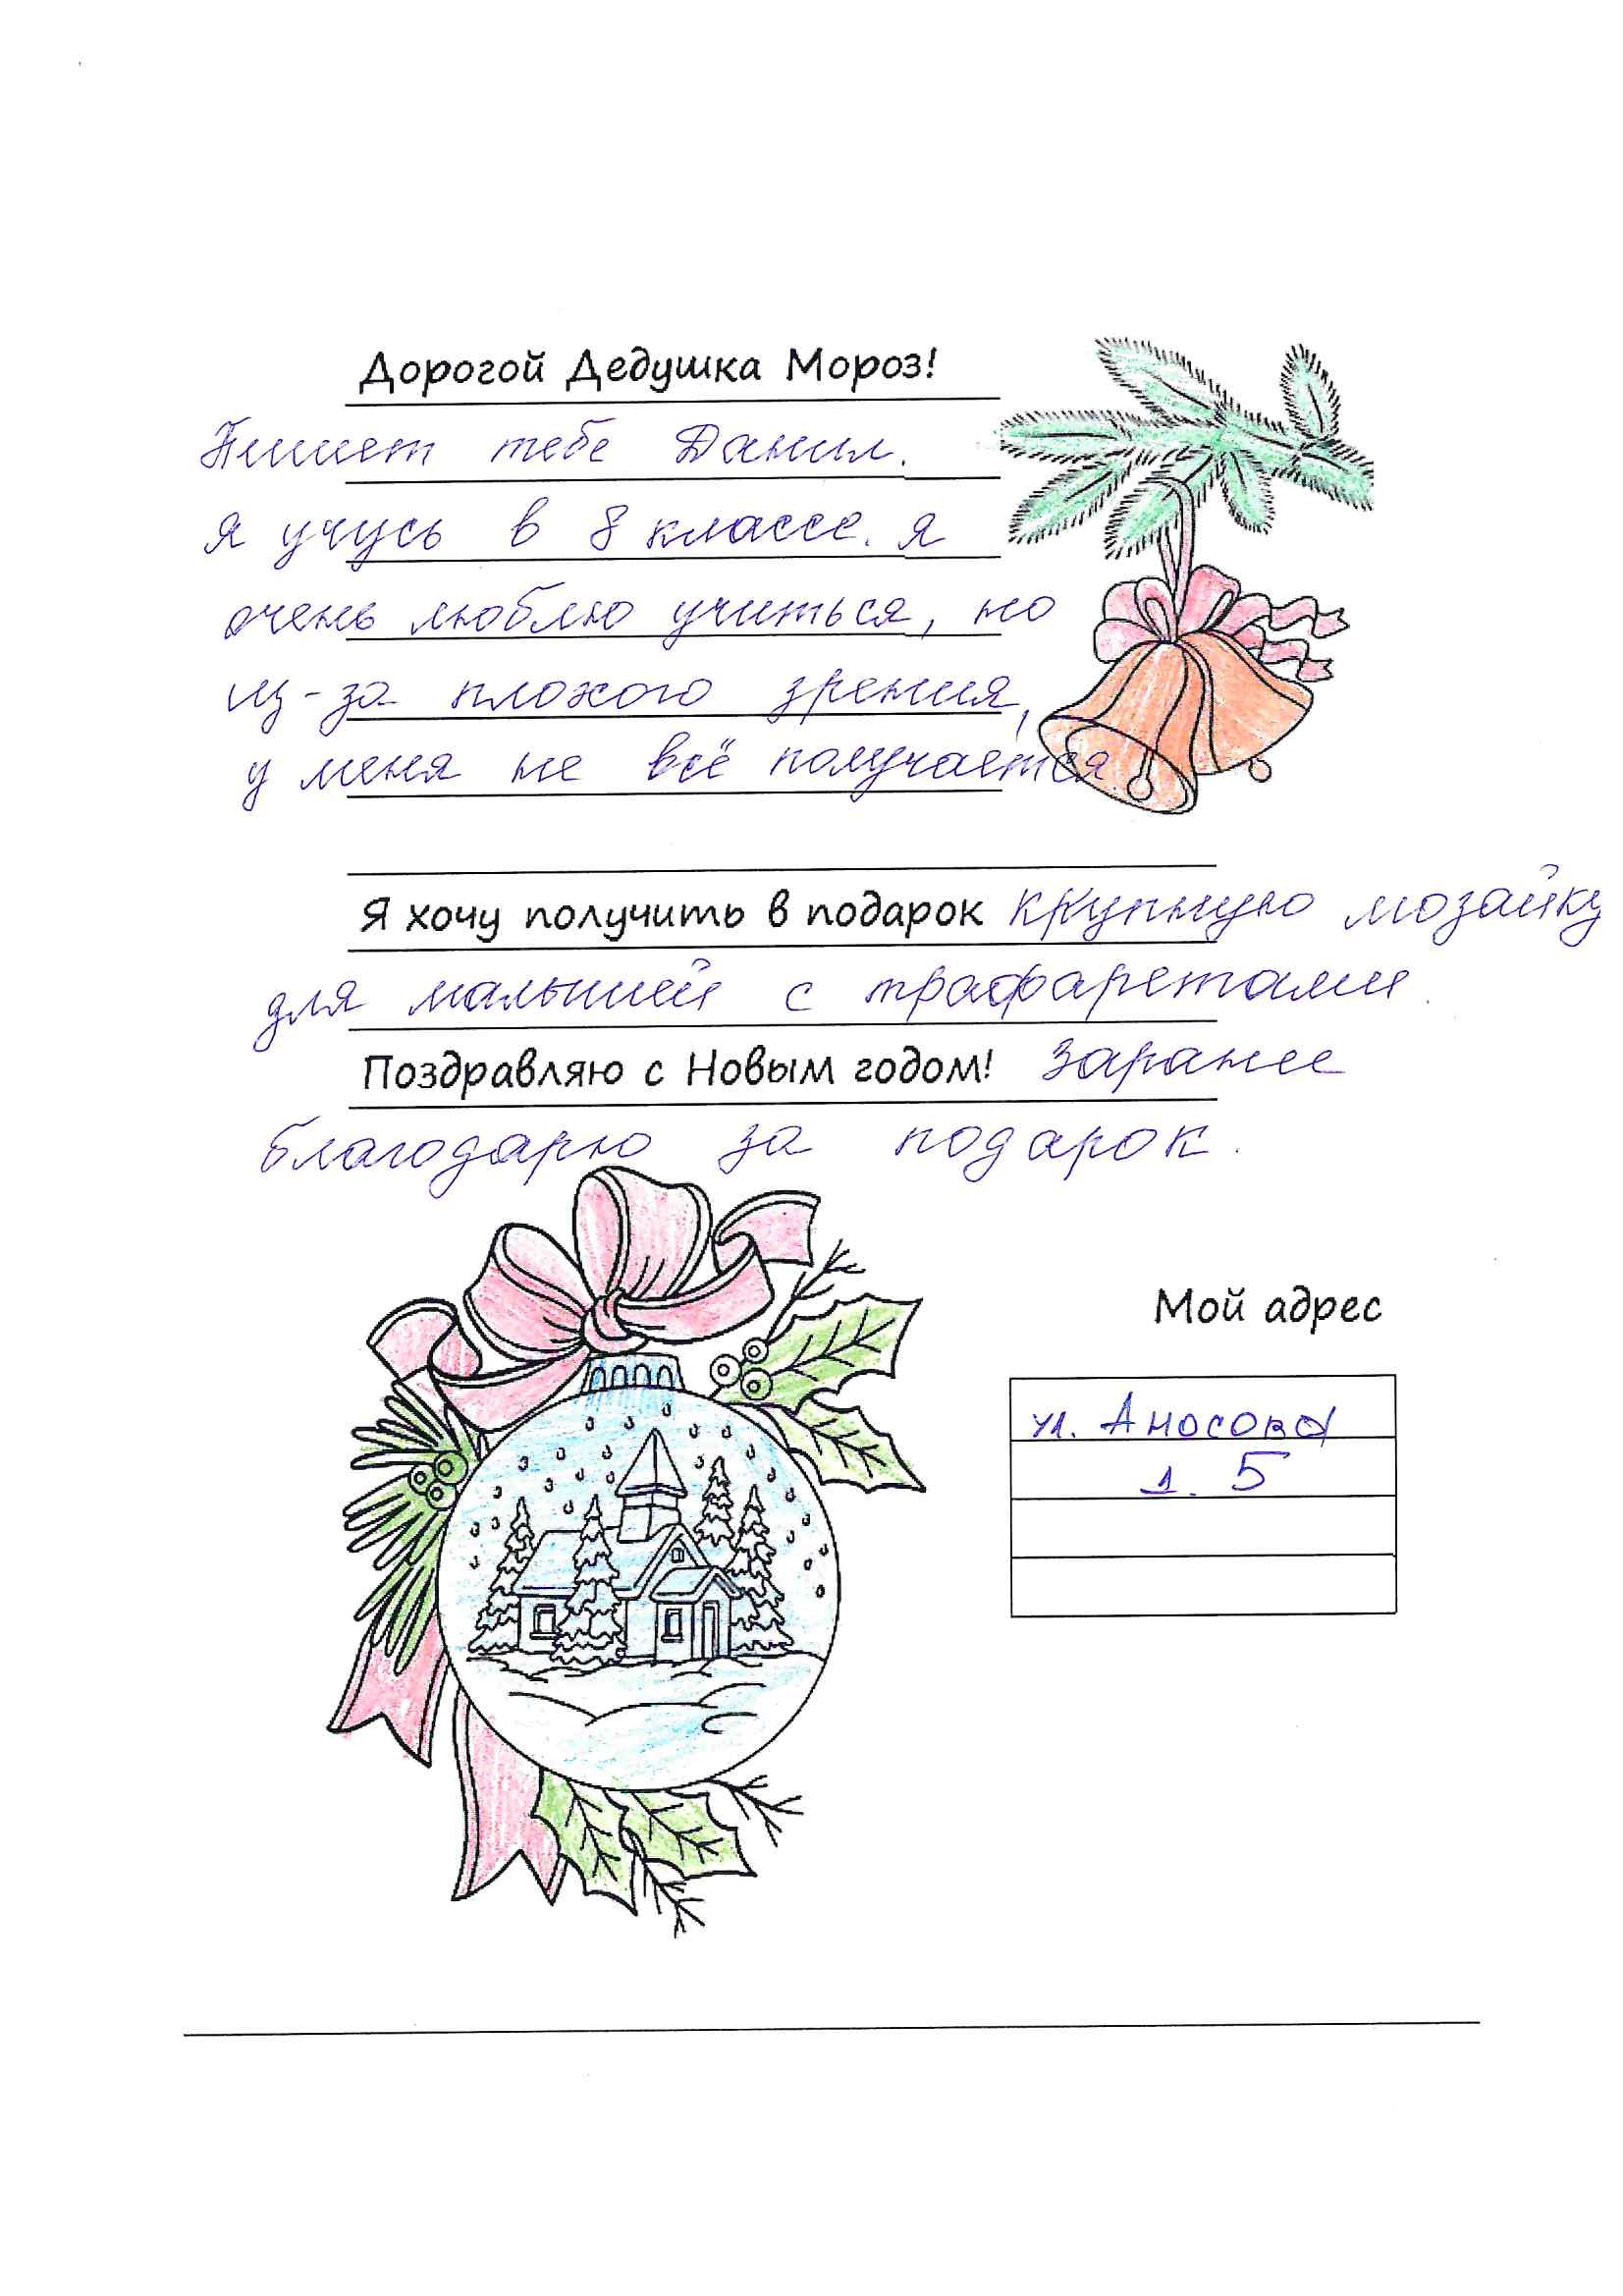 Дорогой Дедушка Мороз!
Пишет тебе Данил.
Я учусь в 8 классе. Я
очень люблю учиться, но
из-за плохого зрения,
у меня не всё получается
Я хочу получить в подарок крупную мозайку
для малышей с трафаретами.
Поздравляю с Новым годом! Заранее
благодарю за подарок.
Мой адрес
ул. Аносова
1. 5